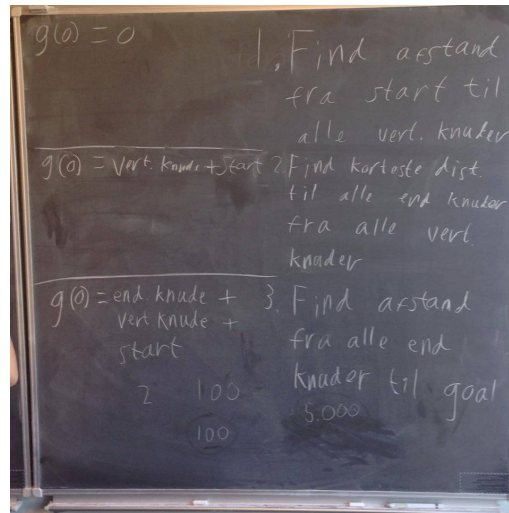 g(0) = 0
1. Find afstand
fra start til
alle vert. knuder
g(0) = vert. knude + start
2. Find korteste dist.
til alle end knuder
fra alle vert.
knuder
g(0) = end knude +
vert knude +
start
3. Find afstand
fra alle end
knuder til goal
2 100
5.000
100